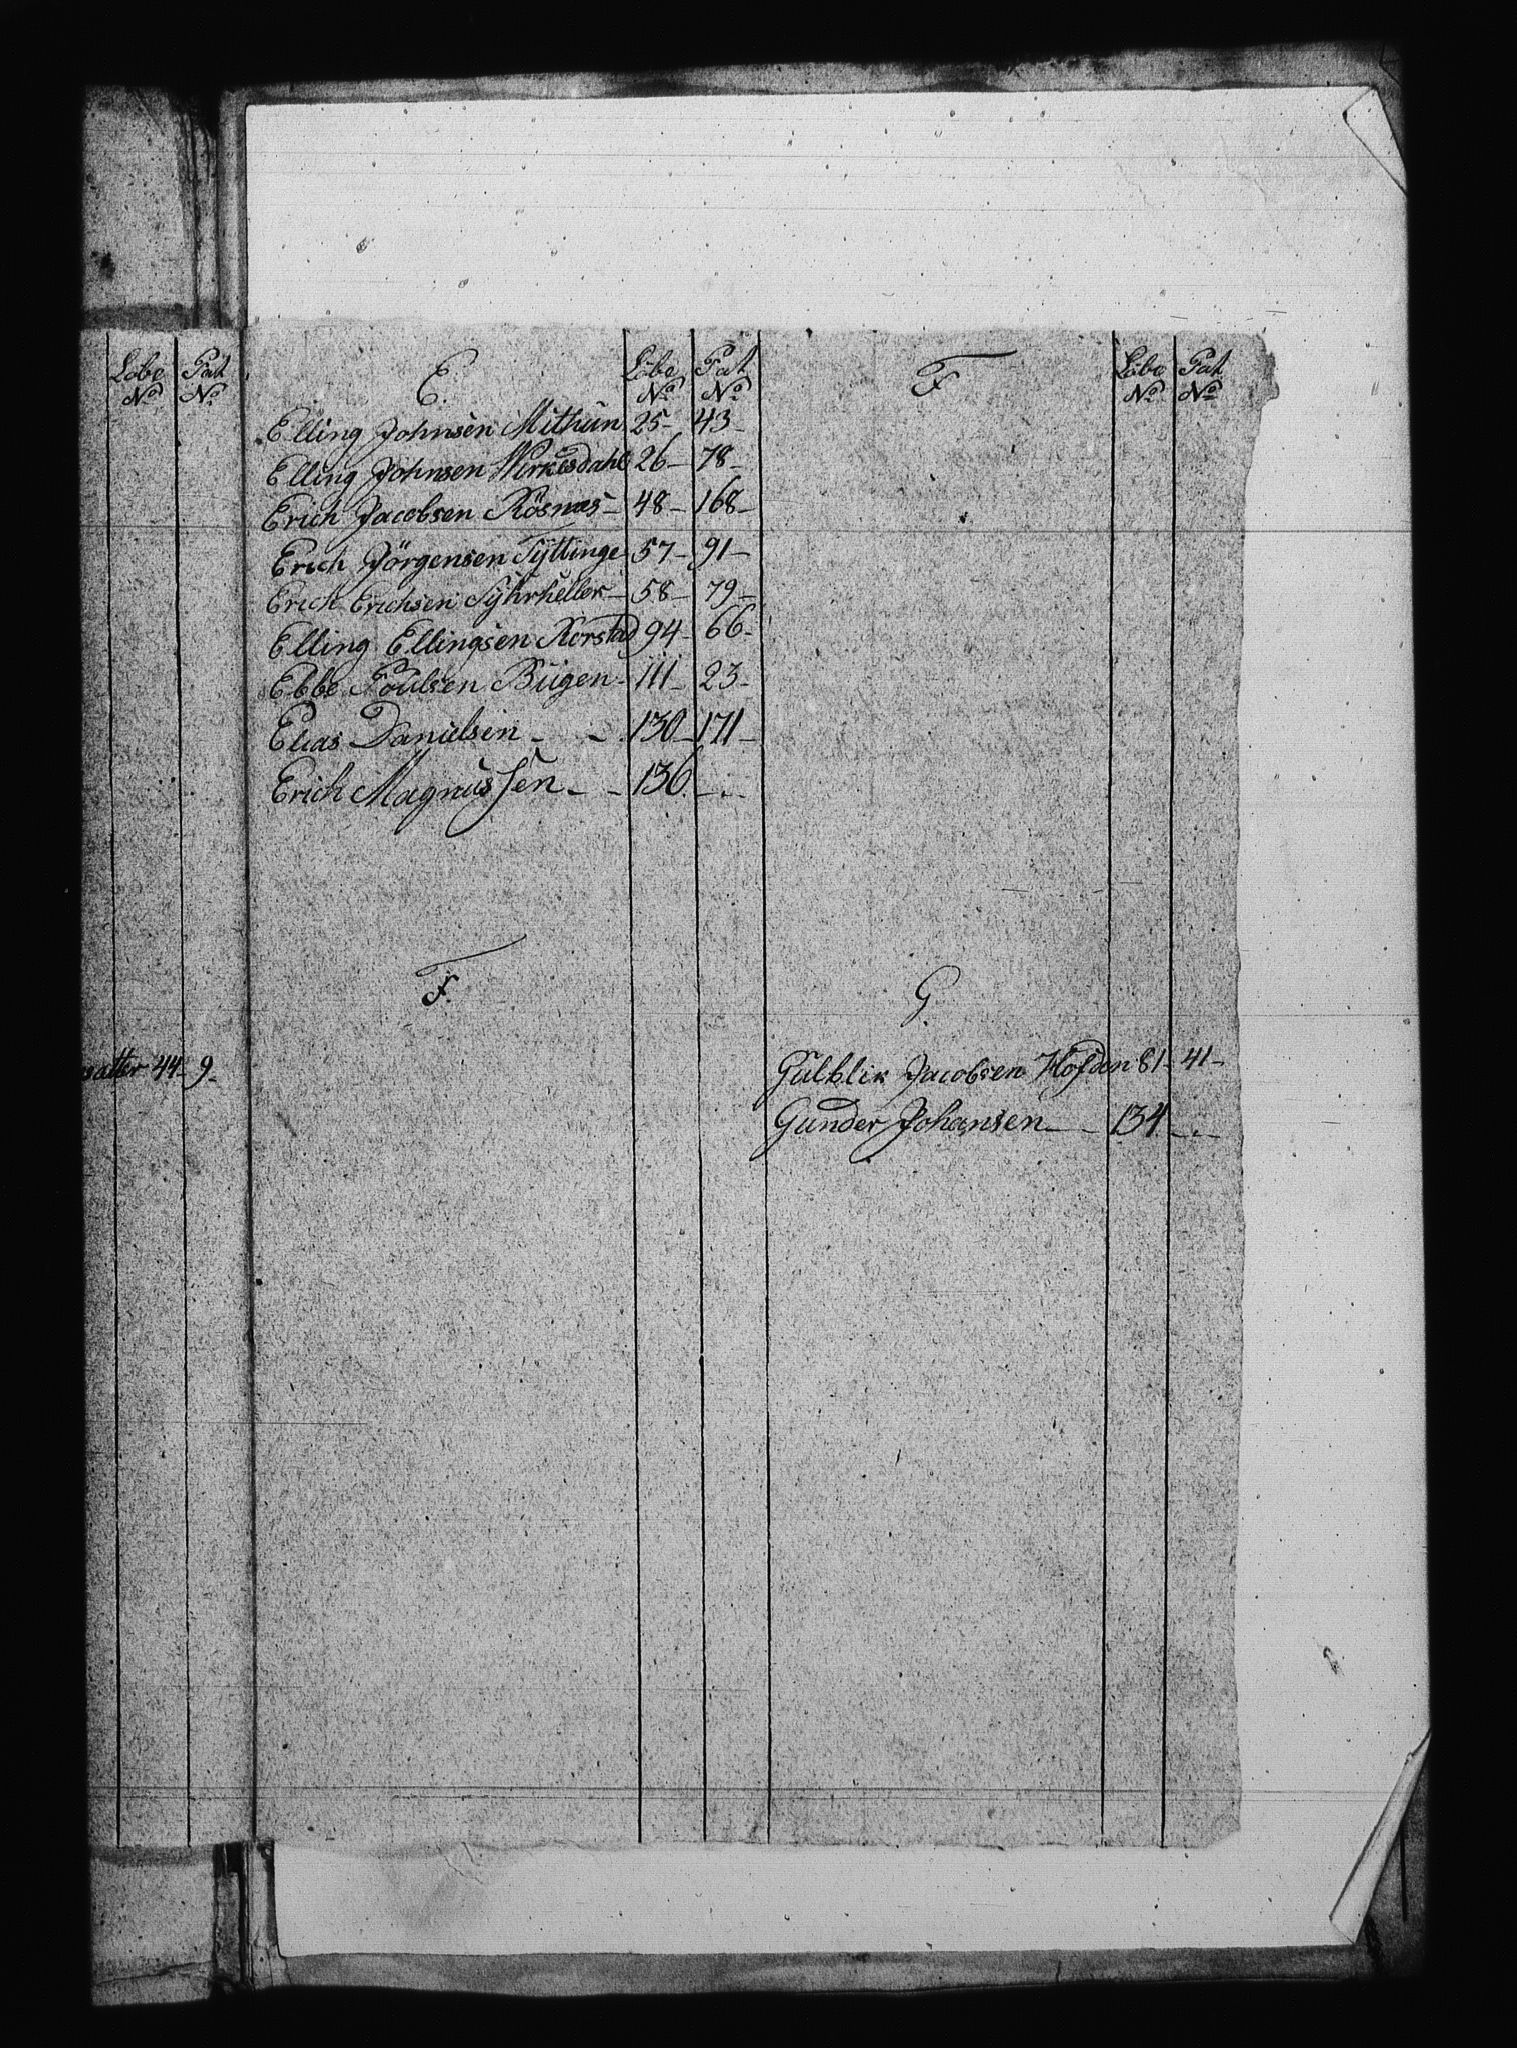 Löbe No Pat No
satter 44 - 9 -
E. Löbe No Pat No
Elling Johnsen Mithun 25 - 43 -
Elling Johnsen Wirkesdahl 26 - 78 -
Erich Jacobsen Rösnæs - 48 - 168 -
Erich Jörgensen Syttinge 57 - 91 -
Erich Erichsen Sÿhrheller - 58 - 79 -
Elling Ellingsen Korstad 94 - 66 -
Ebbe Poulsen Bügen - 111 - 23 -
Elias Danielsen - - 130 - 171 -
Erich Magnussen - - 136 - -
F.
F Löbe No Pat No
G.
Gulblik Jacobsen Hofden 81 - 41 -
Gunder Johansen - - 134 - -